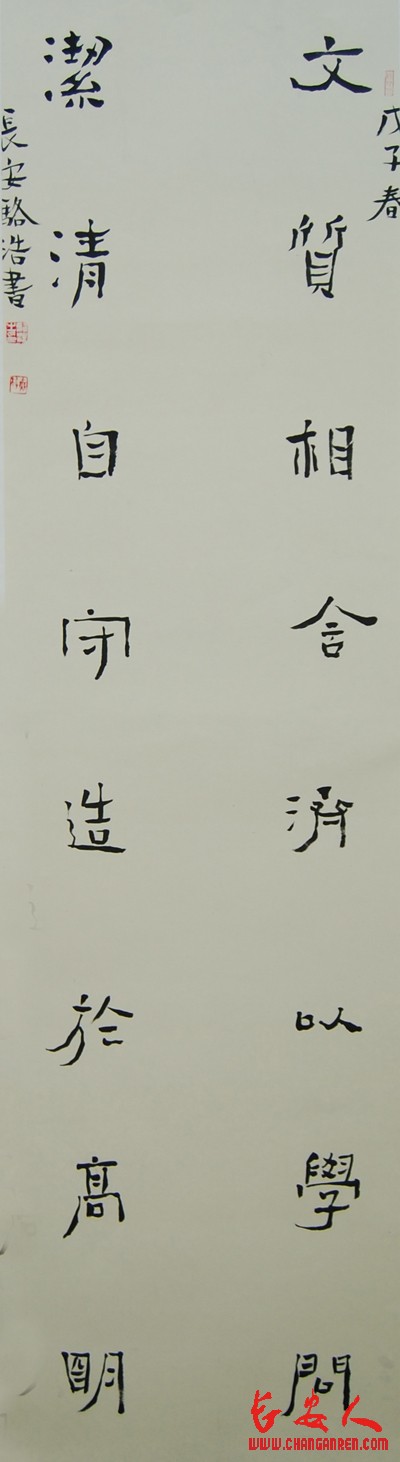 戊子春
文質相合濟以學問
潔清自守造於高明
長安駱浩書
长安人
WWW.CHANGANREN.COM